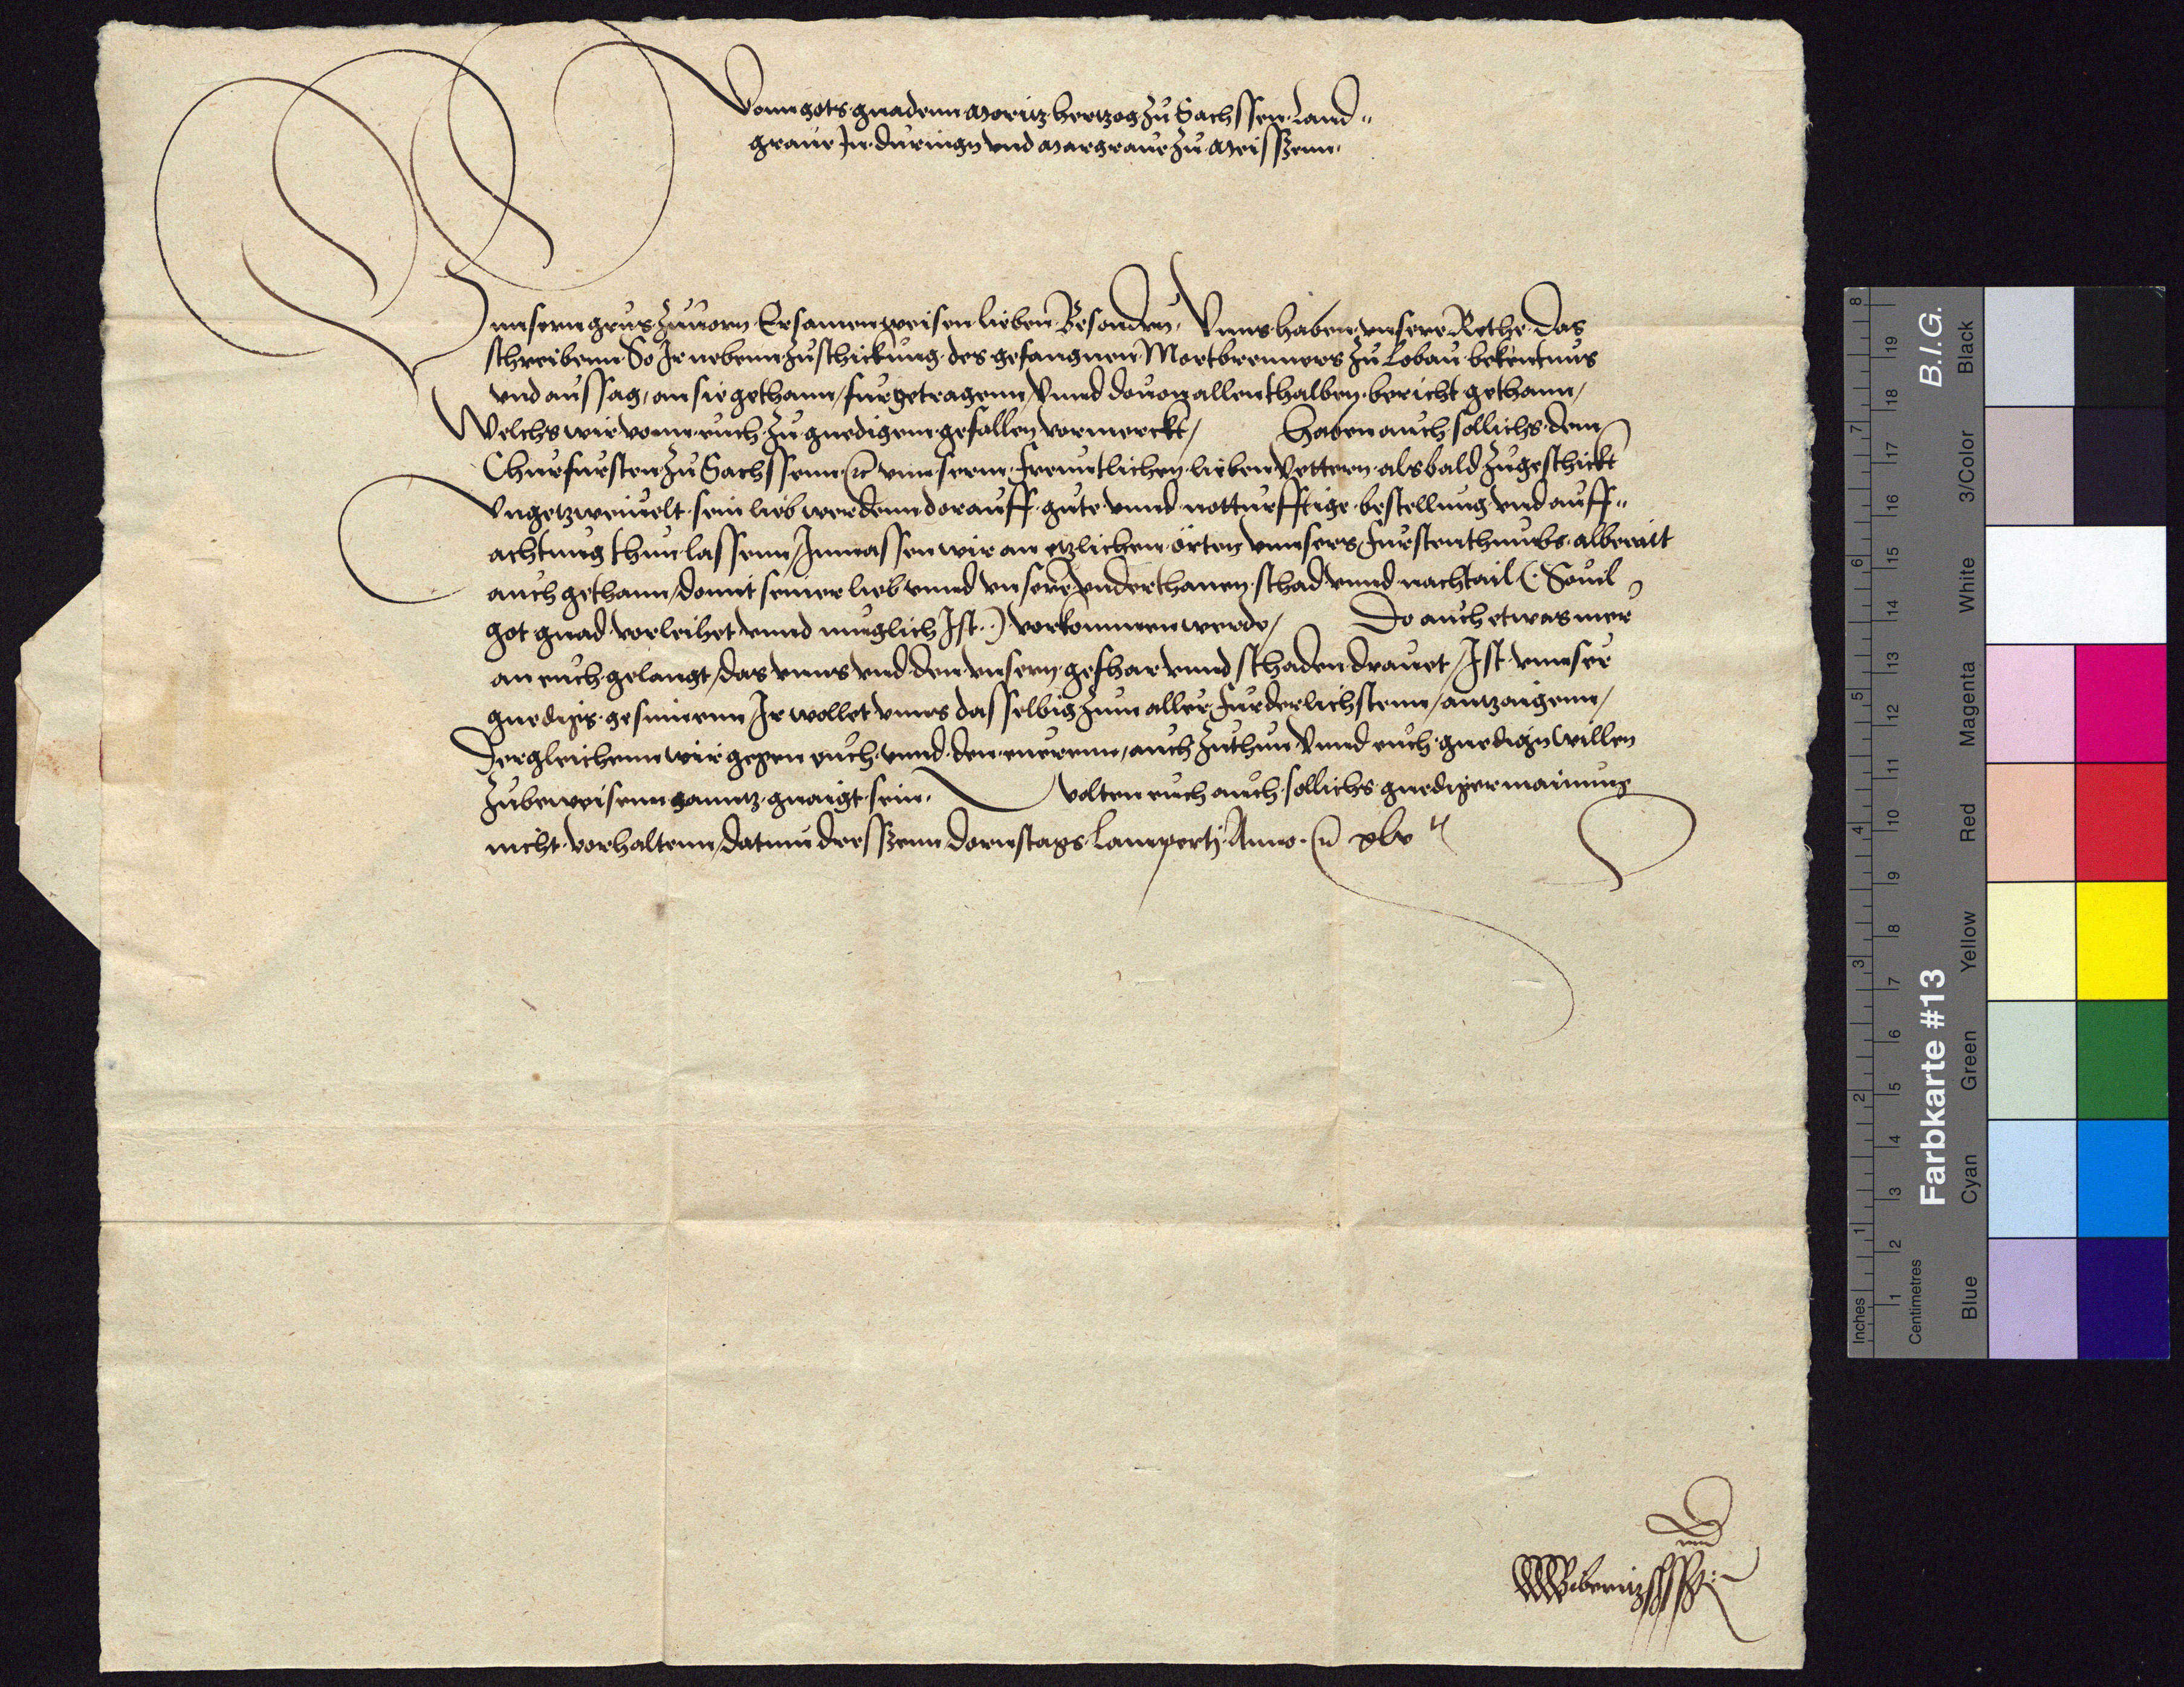 Vonn gots gnadenn Moritz hertzog zu Sachssen Land„
graue In duringn vnd Margraue zu Meissenn.
Vnnsern grus zuuorn Ersamen weisen lieben Besondren, Vnns haben vnsere Rethe das
schreibenn So Ir nebenn zuschickung des gefangnen Mortbrenners zu Lobau bekentnus
vnd aussag, an sie gethann, furgetragenn, Vnnd dauon allenthalben bericht gethann,
Welchs wir vonn euch zu gnedigem gefallen vormerckt, Haben auch sollichs dem
Churfursten zu Sachssenn etc vnnserm freuntlichen lieben Vettern alsbald zugeschickt
Vngetzweiuelt sein lieb werdenn dorauff gute vnnd notturfftige bestellung vnd auff„
achtung thun lassenn, Inmassen wir an etzlichen örten vnnsers Furstenthumbs albereit
auch gethann, domit seiner lieb vnnd vnsere vnderthanen schad vnnd nachtail (: Souil
got gnad vorleihet vnnd muglich Ist :) vorkommen werde, Do auch etwas mer
an euch gelangt, das vnns vnd den vnsern gefhar vnnd schaden drauet, Ist vnnser
gnedigs gesinnenn Ir wollet vnns dasselbig zum aller furderlichstenn, antzaigenn,
Dergleichenn wir gegen euch vnnd den euerenn, auch zuthun Vnnd euch gnedign willen
zubeweisenn ganntz gnaigt sein. Wolten euch auch sollichs gnediger mainung
nicht vorhaltenn, datum dressenn dornstags Lamperti Anno etc xlv